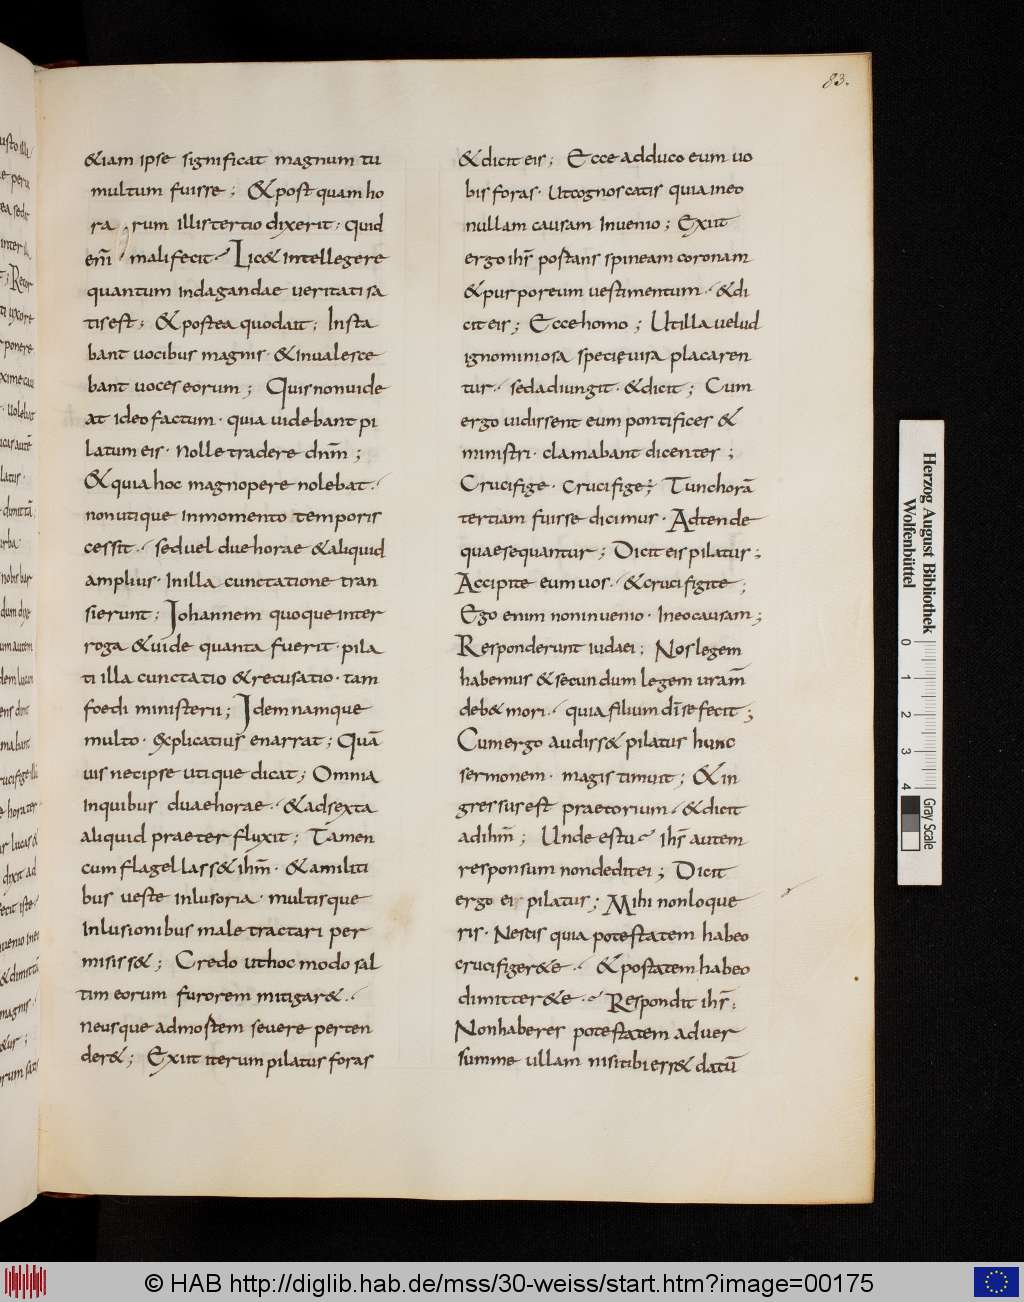 83.
&iam ipse significat magnum tu
multum fuisse; & postquam ho
ra rum illis tertio dixerit; quid
eni̅ mali fecit. Lic& intellegere
quantum indagandae veritati sa
tis est; & postea quod ait; Insta
bant vocibus magnis. & invalesce
bant voces eorum; Quis non vide
at ideo factum. quia videbant pi
latum eis. nolle tradere dnm̅;
& quia hoc magnopere nolebat.
non utique in momento temporis
cessit. sed vel due horae & aliquid
amplius. In illa cunctatione tran
sierunt; Johannem quoque inter
roga & vide quanta fuerit. pila
ti illa cunctatio & recusatio. tam
foedi ministerii; Idem namque
multo. explicatius enarrat; Quā
vis nec ipse utique dicat; Omnia
In quibus duae horae. & ad sexta
aliquid praeter fluxit; Tamen
cum flagellass& ihm̅. & a militi
bus veste inlusoria. multisque
Inlusionibus male tractari per
misiss&; Credo ut hoc modo sal
tim eorum furorem mitigar&.
ne usque ad mostem severe perten
der&; Exiit iterum pilatus foras
& dicit eis; Ecce adduco eum vo
bis foras. ut cognoscatis quia in eo
nullam causam Invenio; Exiit
ergo ihs̅ postans spineam coronam
& purporeum vestimentum. & di
cit eis; Ecce homo; Ut illa velud
ignominiosa specie visa placaren
tur. sed adiungit. & dicit; Cum
ergo vidissent eum pontifices &
ministri. clamabant dicentes;
Crucifige. crucifige; Tunc horā
tertiam fuisse dicimus. Adtende
quae sequantur; Dicit eis pilatus;
Accipite eum vos. & crucifigite;
Ego enim non invenio. In eo causam;
Responderunt iudaei; Nos legem
habemus & secundum legem uram̅
deb& mori. quia filium di̅ se fecit;
Cum ergo audiss& pilatus hunc
sermonem. magis timuit; & in
gressus est praetorium. & dicit
ad ihm̅; Unde es tu. ihs̅ autem
responsum non dedit ei; Dicit
ergo ei pilatus; Mihi non loque
ris. Nescis quia potestatem habeo
crucifiger&e. & postatem habeo
dimitter&e. Respondit ihs̅;
Non haberes potestatem adver
summe ullam nisi tibi ess& datū
Herzog August Bibliothek
Wolfenbüttel
0 1 2 3 4
Gray Scale
© HAB http://diglib.hab.de/mss/30-weiss/start.htm?image=00175